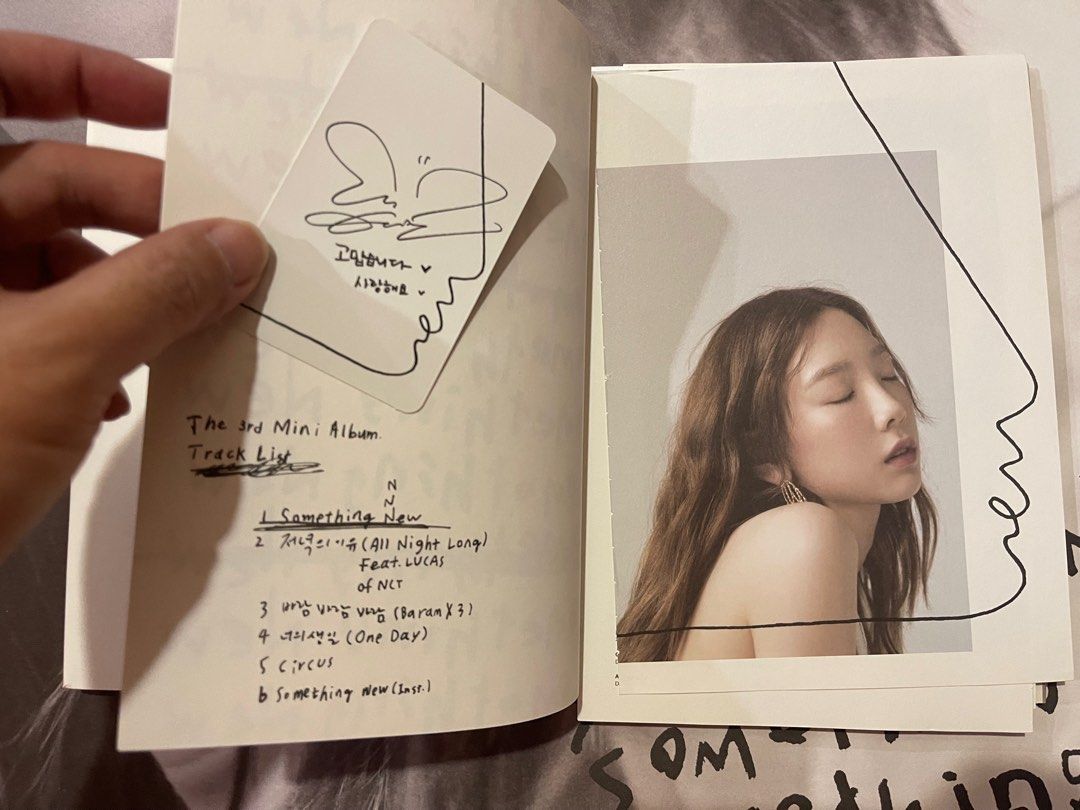 고맙습니다
사랑해요
new
The 3rd Mini Album.
Track List
N
N
1 Something New
2 저녁의 이유 (All Night Long)
Feat. LUCAS
of NCT
3 바람 바람 바람 (Baram X 3)
4 너의 생일 (One Day)
5 Circus
6 Something New (Inst.)
new
Something